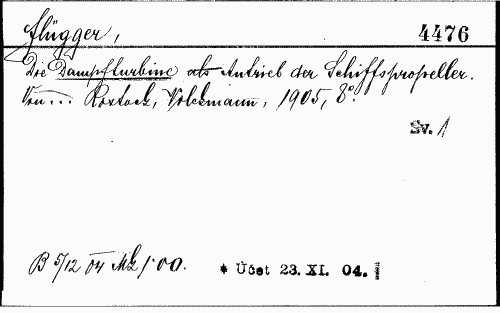 Flügger,
4476
Die Dampfturbine als Antrieb der Schiffspropeller.
Von ... Rostock, Volckmann, 1905, 8°.
Sv. 1
B 5/12 04 Mk 1·00.
* Účet 23. XI. 04.